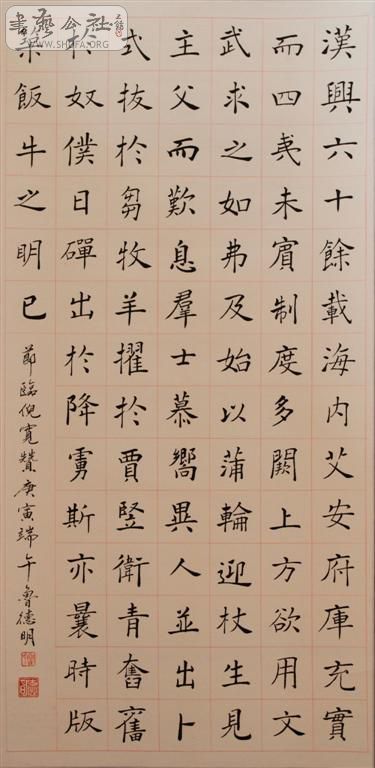 漢興六十餘載海内艾安府庫充實
而四夷未賓制度多闕上方欲用文
武求之如弗及始以蒲輪迎杖生見
主父而歎息羣士慕嚮異人並出卜
式拔於芻牧羊擢於賈竪衛青奮舊
於奴僕日磾出於降虜斯亦曩時版
築飯牛之明已
節臨倪寬贊庚寅端午魯德明
書藝公社
SHUFA.ORG